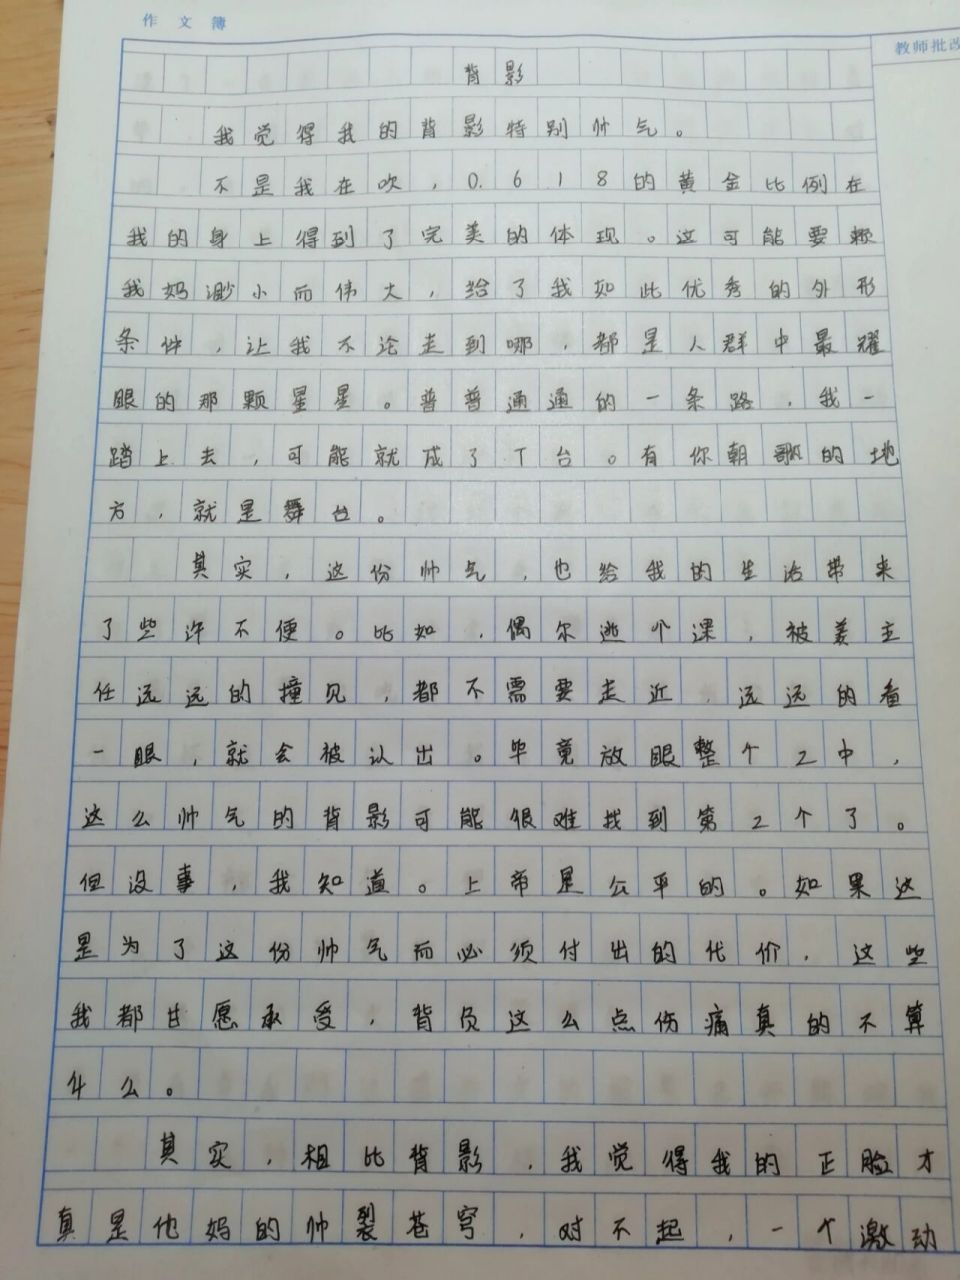 作文簿
教师批改
背影
我觉得我的背影特别帅气。
不是我在吹，0.618的黄金比例在
我的身上得到了完美的体现。这可能要赖
我妈渺小而伟大，给了我如此优秀的外形
条件，让我不论走到哪，都是人群中最耀
眼的那颗星星。普普通通的一条路，我一
踏上去，可能就成了T台。有你朝歌的地
方，就是舞台。
其实，这份帅气，也给我的生活带来
了些许不便。比如，偶尔逃个课，被姜主
任远远的撞见，都不需要走近，远远的看
一眼，就会被认出。毕竟放眼整个2中，
这么帅气的背影可能很难找到第2个了。
但没事，我知道。上帝是公平的。如果这
是为了这份帅气而必须付出的代价，这些
我都甘愿承受，背负这么点伤痛真的不算
什么。
其实，相比背影，我觉得我的正脸才
真是他妈的帅裂苍穹，对不起，一个激动